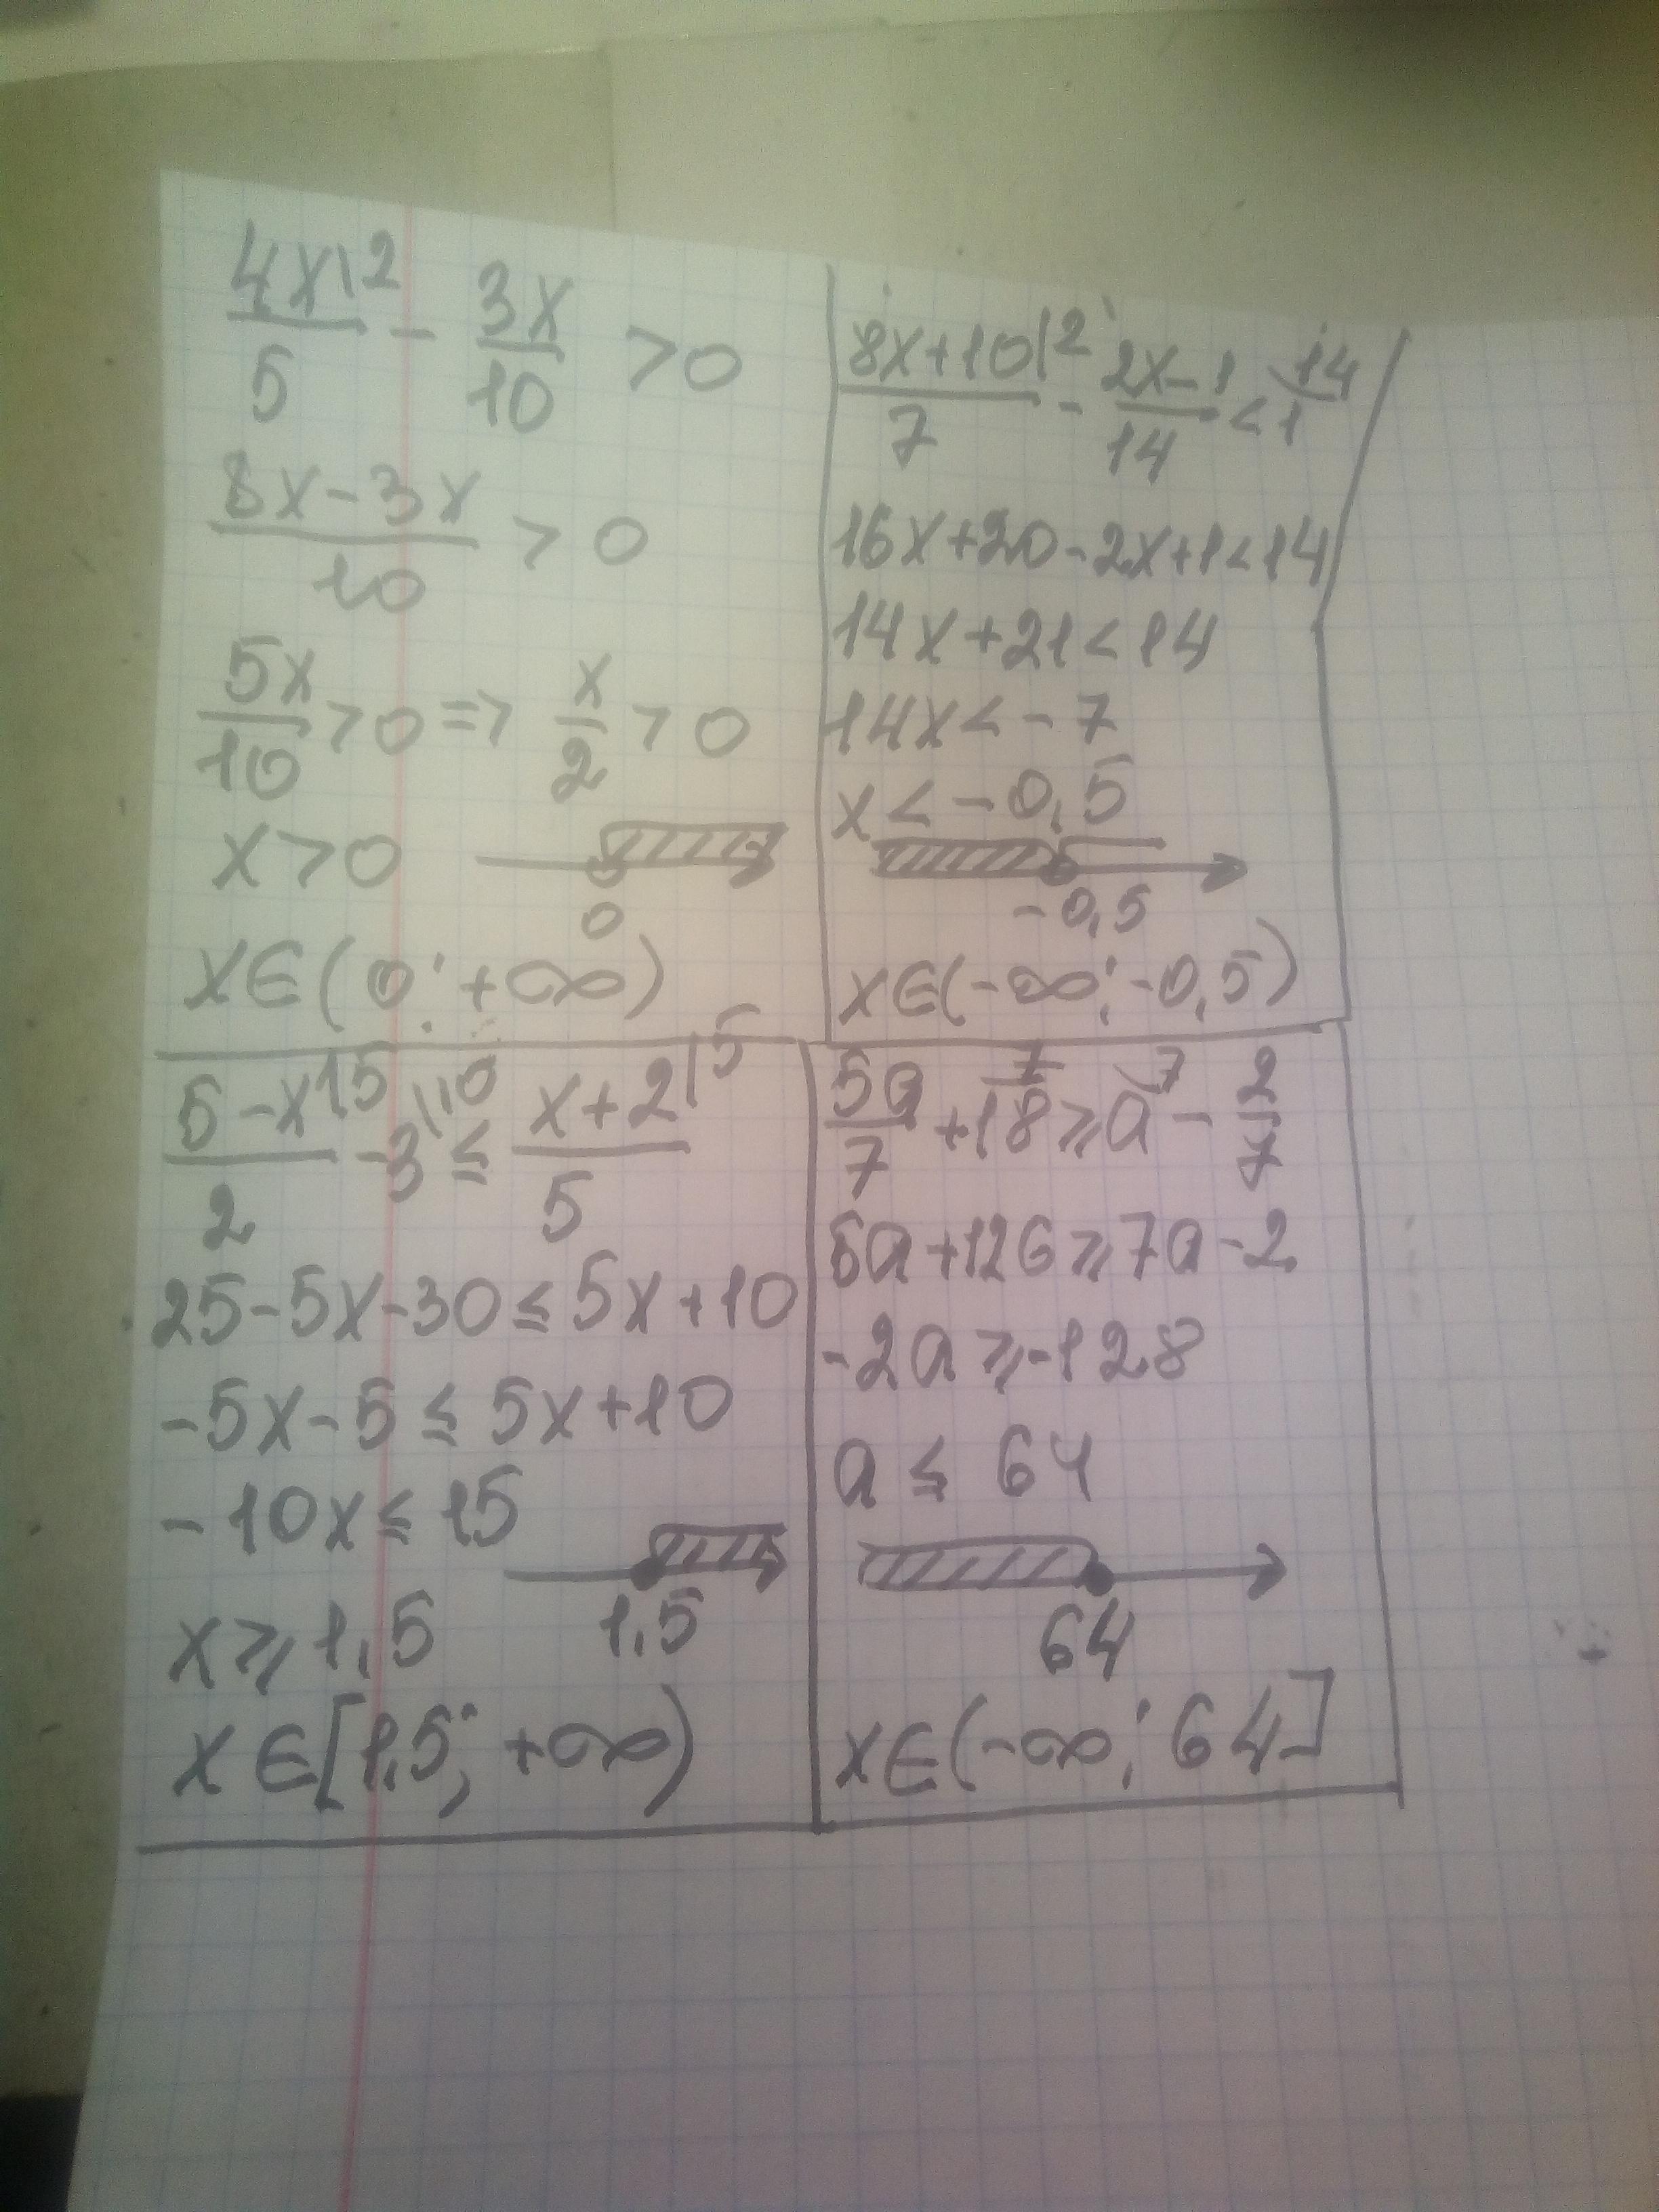 4x\2/5 - 3x/10 > 0
8x-3x/10 > 0
5x/10 > 0 => x/2 > 0
x > 0
0
x∈(0; +∞)
8x+10|2/7 - 2x-1/14 < 1\14
16x+20-2x+1<14
14x+21<14
14x<-7
x<-0,5
-0,5
x∈(-∞; -0,5)
5-x|5/2 - 3\10 ≤ x+2|5/5
25-5x-30≤5x+10
-5x-5≤5x+10
-10x≤15
x⩾1,5
1,5
x∈[1,5; +∞)
5a/7 + 18\7 ⩾ a\7 - 2/7
5a+126⩾7a-2
-2a⩾-128
a ≤ 64
64
x∈(-∞; 64]